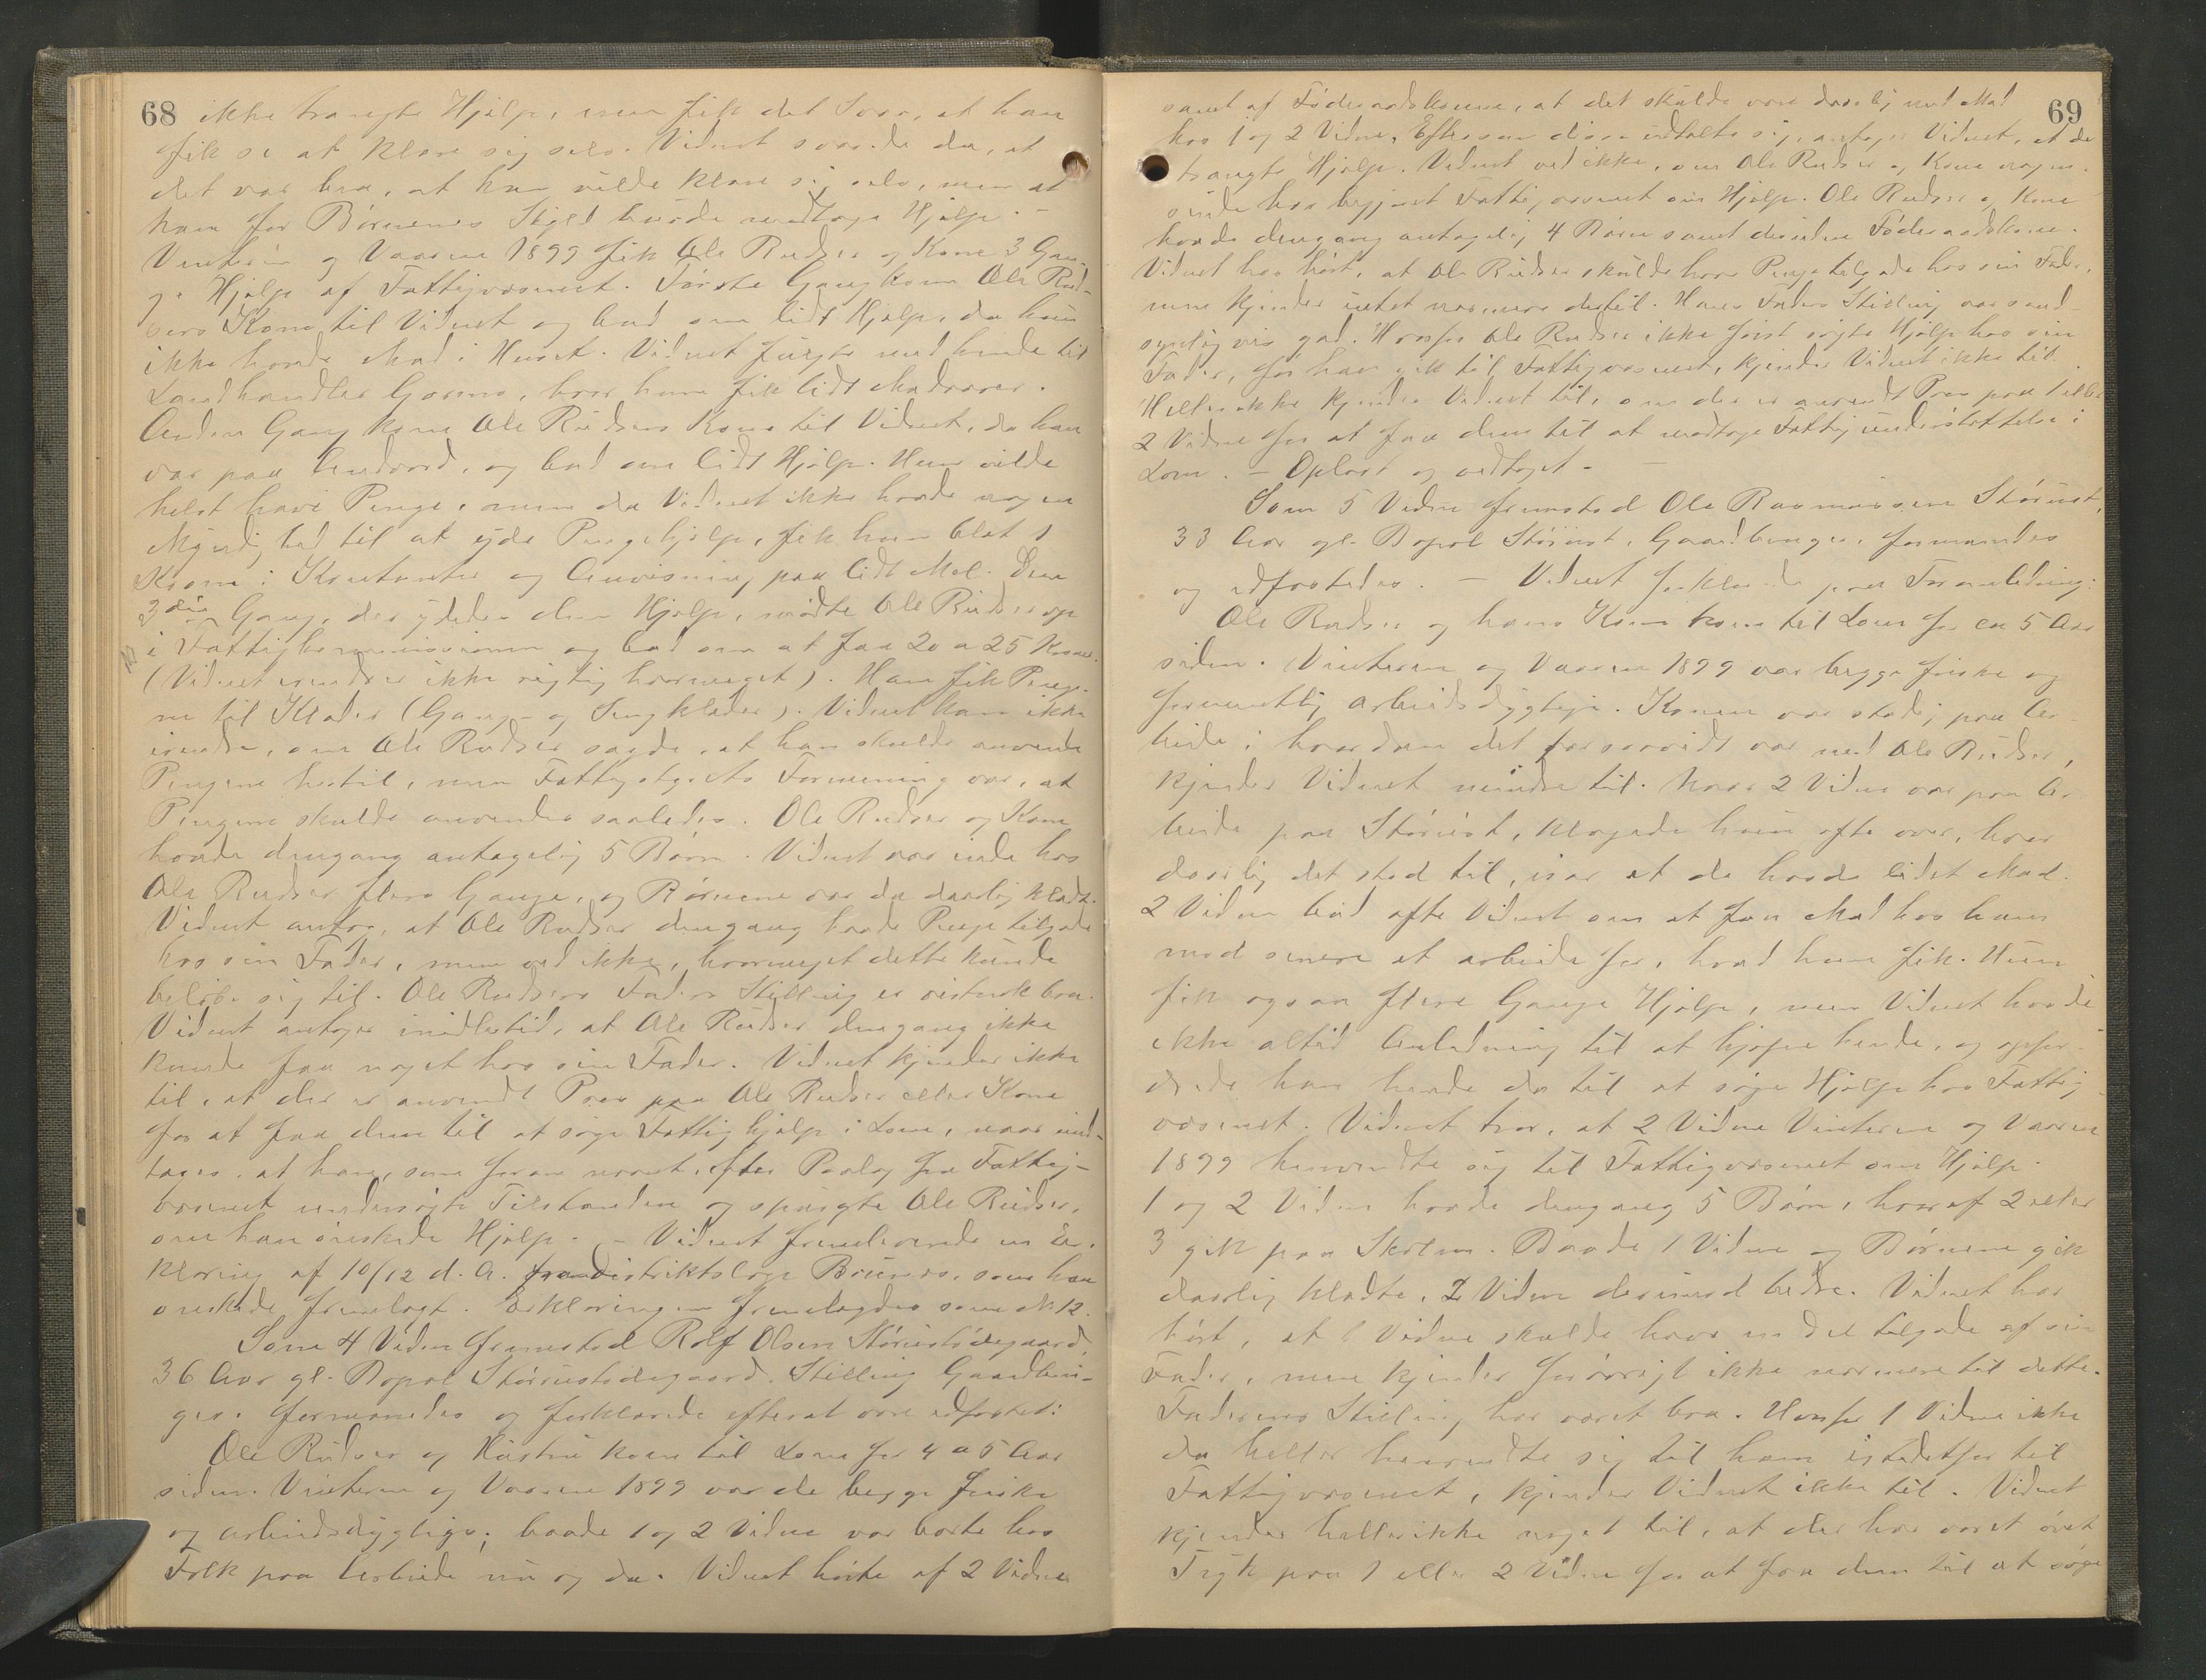 68
ikke trængte Hjælp, men fik det Svar, at han
fik se at klare sig selv. Vidnet svarede da, at
det var bra, at han vilde klare sig selv, men at
han for Børnenes Skyld burde modtage Hjælp. -
Vinteren og Vaaren 1899 fik Ole Rudser og Kone 3 Gan-
ge Hjælp af Fattigvæsenet. Første Gang kom Ole Rud-
sers Kone til Vidnet og bad om lidt Hjælp, da hun
ikke havde Mad i Huset. Vidnet fulgte med hende til
Landhandler Garmo, hvor hun fik lidt Madvarer.
Anden Gang kom Ole Rudsers Kone til Vidnet, da han
var paa Andvord, og bad om lidt Hjælp. Hun vilde
helst have Penge, men da Vidnet ikke havde nogen
Myndighed til at yde Pengehjælp, fik hun blot 1
Krone i Kontanter og Anvisning paa lidt Mel. Den
3die Gang, der ydedes dem Hjælp, mødte Ole Rudser op
i Fattigkommissionen og bad om at faa 20 a 25 Kroner.
(Vidnet mindes ikke rigtig hvormeget). Han fik Penge-
ne til Klæder (Gang- og Sengklæder). Vidnet kan ikke
mindes, om Ole Rudser sagde, at han skulde anvende
Pengene hertil, men Fattigstyrets Formening var, at
Pengene skulde anvendes saaledes. Ole Rudser og Kone
havde dengang antagelig 5 Børn. Vidnet var inde hos
Ole Rudser flere Gange, og Børnene var da daarlig klædt.
Vidnet antog, at Ole Rudser dengang havde Penge tilgode
hos sin Fader, men ved ikke, hvormeget dette kunde
beløbe sig til. Ole Rudsers Faders Stilling er vistnok bra.
Vidnet antager imidlertid, at Ole Rudser dengang ikke
kunde faa noget hos sin Fader. Vidnet kjender ikke
til, at der er anvendt Pres paa Ole Rudser eller Kone
for at faa dem til at søge Fattighjælp i Lom, naar und-
tages, at han, som foran nævnt, efter Paalæg fra Fattig-
væsenet undersøgte Tilstanden og spurgte Ole Rudser,
om han ønskede Hjælp. - Vidnet fremleverede en Er-
klæring af 10/12 d. A. fra Distriktslæge Bruuns, som han
ønskede fremlagt. Erklæringen fremlagdes som № 12.
Som 4 Vidne fremstod Rolf Olsen Størrustødegaard,
36 Aar gl. Bopæl Størrustødegaard, Stilling Gaardbru-
ger, formanedes og forklarede efterat være edfæstet:
Ole Rudser og Hustru kom til Lom for 4 a 5 Aar
siden. Vinteren og Vaaren 1899 var de begge friske
og arbeidsdygtige; baade 1 og 2 Vidne var borte hos
Folk paa Arbeide nu og da. Vidnet hørte af 2 Vidne
69
samt af Føderaadskonen, at det skulde være daarlig med Mad
hos 1 og 2 Vidne. Eftersom disse udtalte sig, antager Vidnet, at de
trængte Hjælp. Vidnet ved ikke, om Ole Rudser og Kone nogen-
sinde har begjæret Fattigvæsenet om Hjælp. Ole Rudser og Kone
havde dengang antagelig 4 Børn samt desuden Føderaadskone.
Vidnet har hørt, at Ole Rudser skulde have Penge tilgode hos sin Fader,
men kjender intet nærmere dertil. Hans Faders Stilling var sand-
synligvis god. Hvorfor Ole Rudser ikke først søgte Hjælp hos sin
Fader, før han gik til Fattigvæsenet, kjender Vidnet ikke til.
Heller ikke kjender Vidnet til, om der er anvendt Pres paa 1 eller
2 Vidne for at faa dem til at modtage Fattigunderstøttelse i
Lom. - Oplæst og vedtaget. -
Som 5 Vidne fremstod Ole Rasmussen Størrust,
33 Aar gl. Bopæl Størrust, Gaardbruger, formanedes
og edfæstedes. - Vidnet forklarede paa Foranledning:
Ole Rudser og hans Kone kom til Lom for ca 5 Aar
siden. Vinteren og Vaaren 1899 var begge friske og
formentlig arbeidsdygtige. Konen var stadig paa Ar-
beide; hvordan det forsaavidt var med Ole Rudser,
kjender Vidnet mindre til. Naar 2 Vidne var paa Ar-
beide paa Størrust, klagede hun ofte over, hvor
daarlig det stod til, især at de havde lidet Mad.
2 Vidne bad ofte Vidnet om at faa Mad hos ham
mod senere at arbeide for, hvad hun fik. Hun
fik ogsaa flere Gange Hjælp, men Vidnet havde
ikke altid Anledning til at hjælpe hende, og opfor-
drede han hende da til at søge Hjælp hos Fattig-
væsenet. Vidnet tror, at 2 Vidne Vinteren og Vaaren
1899 henvendte sig til Fattigvæsenet om Hjælp.
1 og 2 Vidne havde dengang 5 Børn, hvoraf 2 eller
3 gik paa Skolen. Baade 1 Vidne og Børnene gik
daarlig klædte, 2 Vidne derimod bedre. Vidnet har
hørt, at 1 Vidne skulde have en Del tilgode af sin
Fader, men kjender forøvrigt ikke nærmere til dette.
Faderens Stilling har været bra. Hvorfor 1 Vidne ikke
da heller henvendte sig til ham istedetfor til
Fattigvæsenet, kjender Vidnet ikke til. Vidnet
kjender heller ikke noget til, at der har været øvet
Tryk paa 1 eller 2 Vidne for at faa dem til at søge